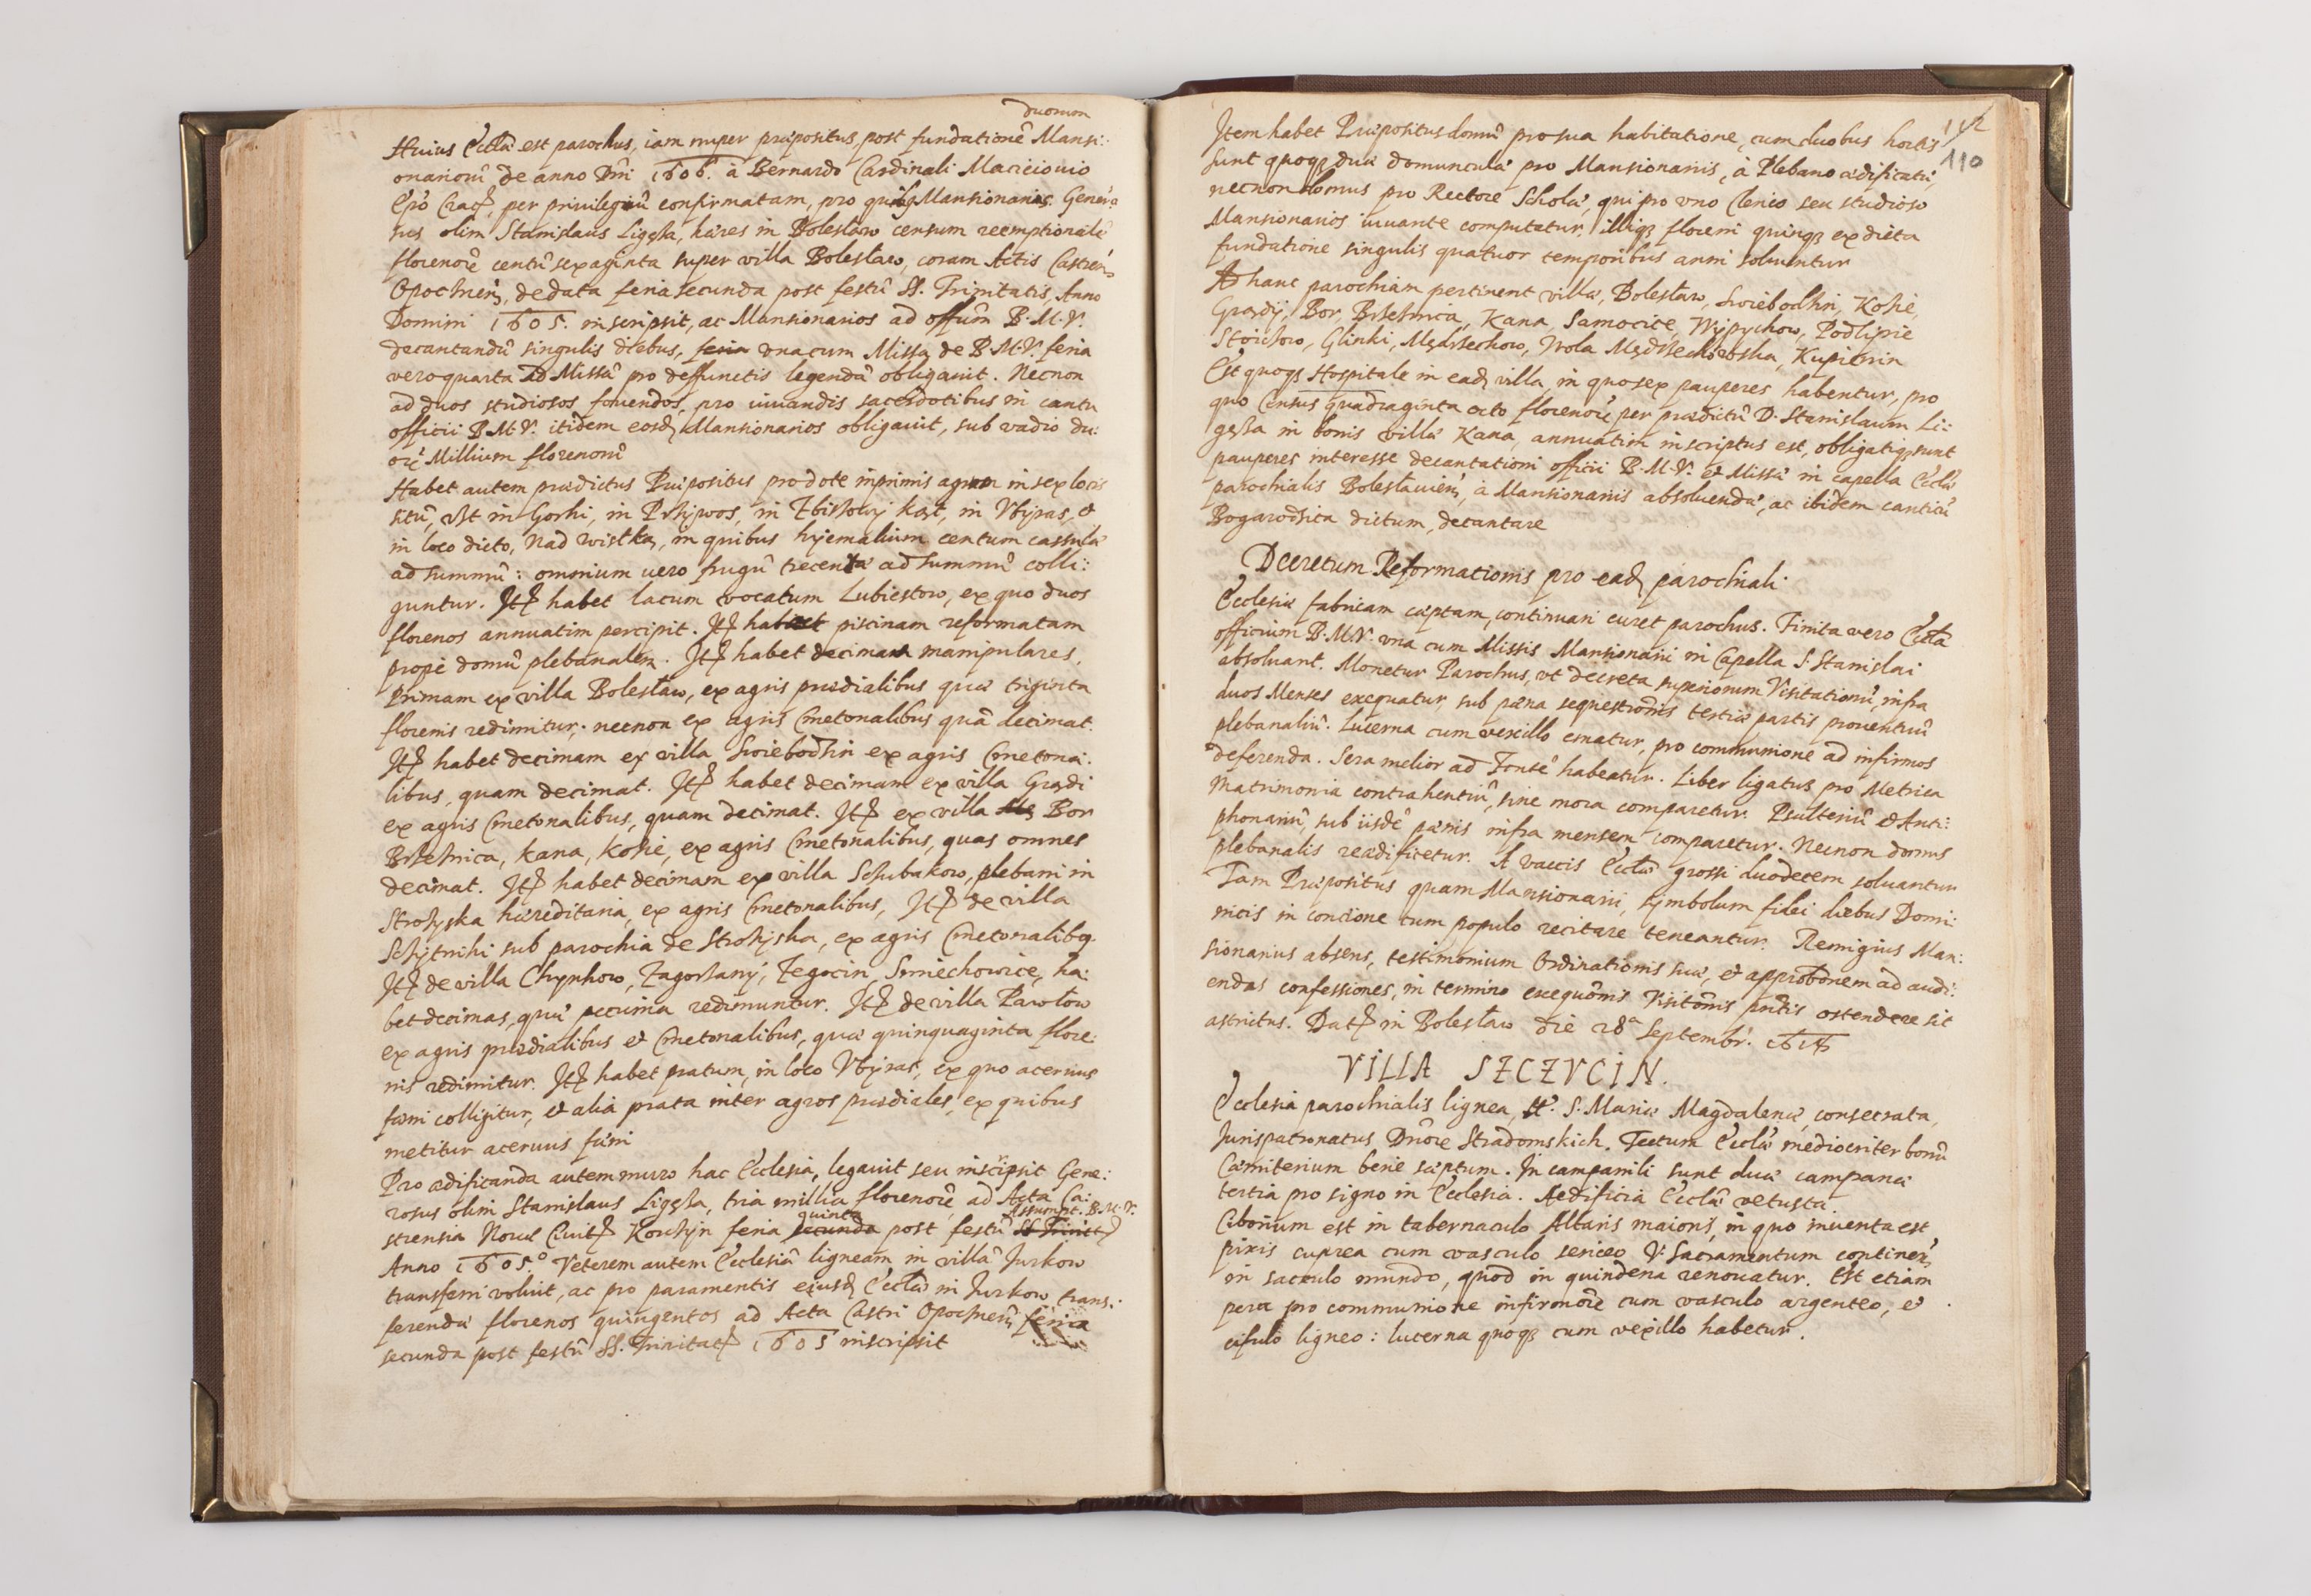 duorum
Huius Eccłae est parochus, iam nuper praepositus, post fundationē Mansi:
onariorū de anno Dni 1606. à Bernardo Cardinali Macieiouio
Epō Crac, per privilegiū confirmatam, pro quibus Mansionariis Genero
sus olim Stanislaus Ligęza, haeres in Bolesław censum reemptionalē
florenorū centū sexaginta super villa Bolesław, coram Actis Castren
Opocznen, de data feria secunda post festū SS. Trinitatis, Anno
Domini 1605. inscripsit, ac Mansionarios ad offūm B.M.V.
decantandū singulis diebus, feria vna cum Missa de B.M.V. feria
vero quarta ad Missā pro deffunctis legendā obligauit. Necnon
ad duos studiosos fouendos, pro iuuandis sacerdotibus in cantu
officii B.M.V. itidem eosd Mansionarios obligauit, sub vadio du:
orū Millium florenorū
Habet autem praedictus Praepositus pro dote inprimis agrum in sex locis
sitū, vst in Gorki, in Przywos, in Zbiskowy kąt, in Vbyras, et
in loco dicto, Nad wisłką, in quibus hyemalium centum cassulae
ad summū: omnium uero frugū trecentae ad summū colli:
guntur. It habet lacum vocatum Lubiestow, ex quo duos
florenos annuatim percipit. It habet piscinam reformatam
prope domū plebanalem. It habet decimas manipulares.
Primam ex villa Bolesław, ex agris praedialibus quae triginta
florenis redimitur; necnon ex agris Cmetonalibus quā decimat.
It habet decimam ex villa Swiebodzin ex agris Cmetona:
libus, quam decimat. It habet decimam ex villa Grądi
ex agris Cmetonalibus, quam decimat. It ex villa Bor
Brzeznica, Kana, Kozie, ex agris Cmetonalibus, quas omnes
decimat. It habet decimam ex villa Schubakow, plebani in
Strozyska haereditaria, ex agris Cmetonalibus, It de villa
Schytniki sub parochia de Strozyska, ex agris Cmetonalibq.
It de villa Chynkow, Zagorzany, Zegocin, Smiechowice, ha:
bet decimas, quae pecunia redimuntur. It de villa Pawłow
ex agris praedialibus et Cmetonalibus, quae quinquaginta flore:
nis redimitur. It habet pratum, in loco Vbyras, ex quo aceruus
faeni colligitur, et alia prata inter agros praediales, ex quibus
metitur aceruus faeni
Pro aedificanda autem muro hac Ecclesia, legauit seu inscripsit Gene:
rosus olim Stanislaus Ligęza, tria millia florenorū, ad Acta Ca:
strensia Novae Ciuit Korczyn feria secunda quinta post festū SS Trinit Assumpt. B.M.V.
Anno 1605.º Veterem autem Ecclesiā ligneam in villā Jurkow
transferri voluit, ac pro paramentis eiusd Eccłae in Jurkow trans:
ferendae florenos quingentos ad Acta Castri Opocznen feria
secunda post festū SS. Trinitat 1605 inscripsit
112
110
Item habet Praepositus domū pro sua habitatione, cum duobus hortis
sunt quoq duae domunculae pro Mansionariis, à Plebano aedificatae,
necnon domus pro Rectore Scholae, qui pro vno Clerico seu studioso
Mansionarios iuuante computatur, illiq floreni quinq ex dicta
fundatione singulis quatuor temporibus anni soluuntur
Ad hanc parochiam pertinent villae, Bolesław, Swiebodzin, Kozie,
Grądy, Bor, Brzeznica, Kana, Samocice, Wypychow, Podlipie
Stoichow, Glinki, Mędrzechow, Wola Mędrzechowska, Kupienin
Est quoq Hospitale in ead villa, in quo sex pauperes habentur, pro
quo Census quadraginta octo florenorū per praedictū D. Stanislaum Li:
gęza in bonis villae Kana, annuatim inscriptus est, obligatiq sunt
pauperes interesse decantationi officii B.M.V. et Missae in capella Eccłae
parochialis Bolesłauien, à Mansionariis absoluendae, ac ibidem canticū
Bogarodzica dictum, decantare
Decretum Reformationis pro ead parochiali.
Ecclesiae fabricam caeptam, continuari curet parochus. Finita vero Eccła
officium B.M.V. vna cum Missis Mansionarii in Capella S. Stanislai
absoluant. Monetur Parochus, vt decreta superiorum Visitationū, infra
duos Menses exequatur sub paena sequestrōnis tertiae partis prouentuū
plebanaliū. Lucerna cum vexillo ematur, pro communione ad infirmos
deferenda. Sera melior ad Fontē habeatur. Liber ligatus pro Metrica
Matrimonia contrahentiū, sine mora comparetur. Psalteriū et Anti:
phonariū, sub iisdē paenis infra mensem comparetur. Necnon domus
plebanalis readificetur. A vaccis Eccłae grossi duodecem soluantur
Tam Praepositus quam Mansionarii, symbolum fidei diebus Domi:
nicis in concione cum populo recitare teneantur. Remigius Man:
sionarius absens, testimonium Ordinationis suae, et approbōnem ad audi:
endas confessiones, in termino exequōnis Visitōnis pntis ostendere sit
astrictus. Dat in Bolesław die 28ª Septembr.
VILLA SZCZVCIN.
Ecclesia parochialis lignea, tt. S. Mariae Magdalenae, consecrata,
Jurispatronatus Dnōrū Stradomskich. Tectum Eccłae mediocriter bonū
Caemiterium bene saeptum. In campanili sunt duae campanae
tertia pro signo in Ecclesia. Aedificia Eccłae vetusta.
Ciborium est in tabernaculo Altaris maioris, in quo inuenta est
pixis cuprea cum vasculo sericeo V. Sacramentum continen
in sacculo mundo, quod in quindena renouatur. Est etiam
pera pro communione infirmorū cum vasculo argenteo, et
cifulo ligneo: lucerna quoq cum vexillo habetur.